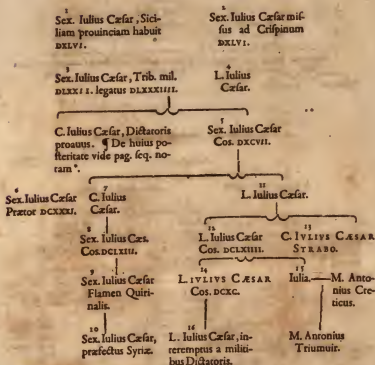 1
Sex. Iulius Cæsar, Sici-
liam prouinciam habuit
DXLVI.
2
Sex. Iulius Cæsar mis-
sus ad Crispinum
DXLVI.
3
Sex. Iulius Cæsar, Trib. mil.
DLXXII. legatus DLXXXIIII.
4
L. Iulius
Cæsar.
C. Iulius Cæsar, Dictatoris
proauus. ¶ De huius po-
steritate vide pag. seq. no-
tam *.
5
Sex. Iulius Cæsar
Cos. DXCVII.
6
Sex. Iulius Cæsar
Prætor DCXXXI.
7
C. Iulius
Cæsar.
11
L. Iulius Cæsar.
8
Sex. Iulius Cæs.
Cos. DCLXIII.
12
L. Iulius Cæsar
Cos. DCLXIIII.
13
C. IVLIVS CÆSAR
STRABO.
9
Sex. Iulius Cæsar
Flamen Quiri-
nalis.
14
L. IVLIVS CÆSAR
Cos. DCXC.
15
Iulia.— M. Anto-
nius Cre-
ticus.
10
Sex. Iulius Cæsar,
præfectus Syriæ.
16
L. Iulius Cæsar, in-
teremptus a militi-
bus Dictatoris.
M. Antonius
Triumuir.